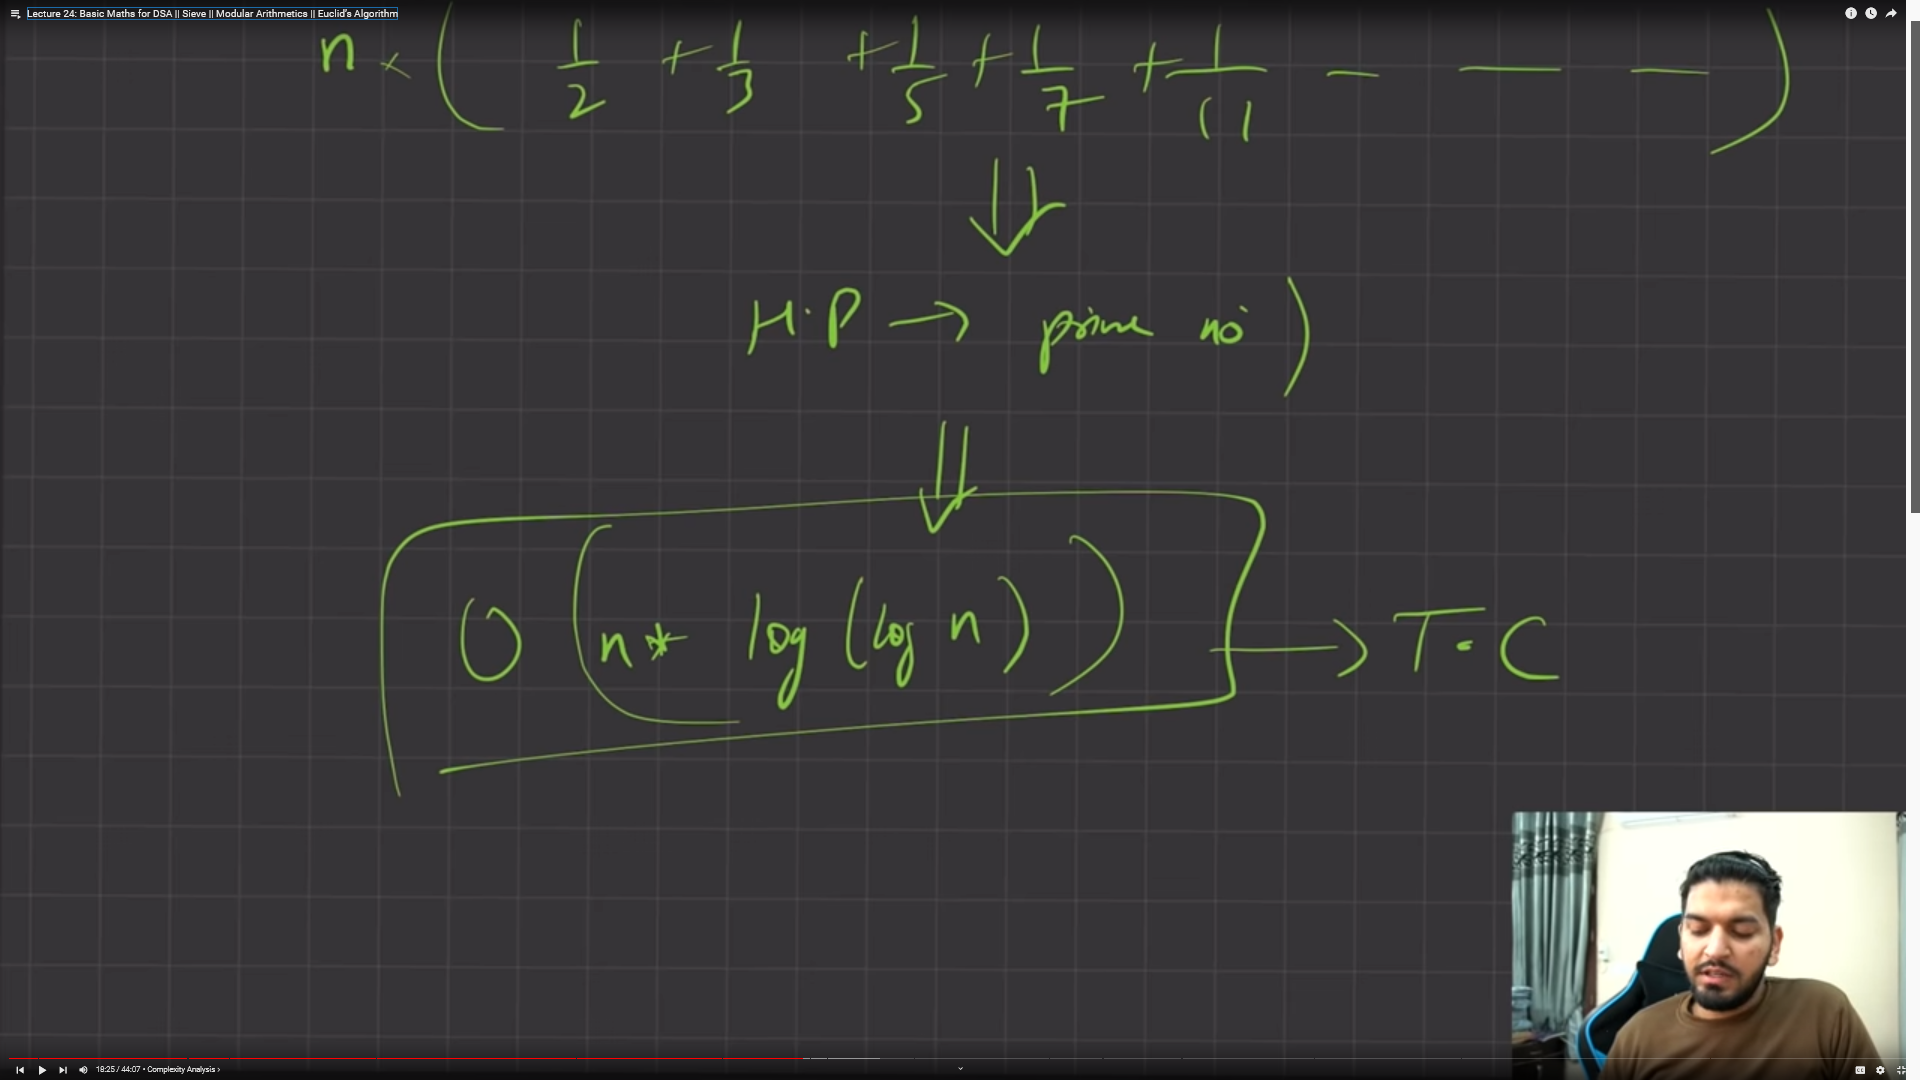 Lecture 24: Basic Maths for DSA || Sieve || Modular Arithmetics || Euclid's Algorithm
n × ( 1/2 + 1/3 + 1/5 + 1/7 + 1/11 — — — )
H.P → prime no )
O ( n * log (log n) ) → T.C
18:25 / 44:07 • Complexity Analysis ›